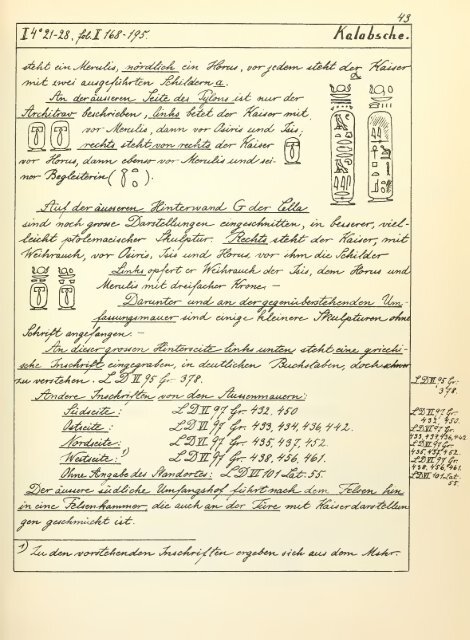 43
I 4° 21-28, fol. II 168-195. Kalabsche.
steht ein Merulis, nördlich ein Horus, vor jedem steht der Kaiser
mit zwei ausgeführten Schildern a. a
An der äusseren Seite des Pylons ist nur der
Architrav beschrieben, links betet der Kaiser mit
vor Merulis, dann vor Osiris und Isis;
rechts steht von rechts der Kaiser
vor Horus, dann ebenso vor Merulis und sei-
ner Begleiterin ( ).
Auf der äusseren Hinterwand G der Cella
sind noch grosse Darstellungen eingeschnitten, in besserer, viel-
leicht ptolemaeischer Skulptur. Rechts steht der Kaiser, mit
Weihrauch, vor Osiris, Isis und Horus, vor ihm die Schilder
Links opfert er Weihrauch der Isis, dem Horus und
Merulis mit dreifacher Krone. —
Darunter und an der gegenüberstehenden Um-
fassungsmauer sind einige kleinere Skulpturen ohne
Schrift angefangen. —
An dieser grossen Hinterseite links unten steht eine griechi-
sche Inschrift eingegraben, in deutlichen Buchstaben, doch schwer
zu verstehen. LD VI 95 Gr. 378.
LD VI 95 Gr. 378.
Andere Inschriften von den Aussenmauern:
Südseite: LD VI 97 Gr. 432, 450
LD VI 97 Gr. 432, 450.
Ostseite: LD VI 97 Gr. 433, 434, 436, 442.
LD VI 97 Gr. 433, 434, 436, 442
Nordseite: LD VI 97 Gr. 435, 437, 452.
LD VI 97 Gr. 435, 437, 452.
Westseite: 1) LD VI 97 Gr. 438, 456, 461.
LD VI 97 Gr. 438, 456, 461.
Ohne Angabe des Standortes: LD VI 101 Lat. 55.
LD VI 101 Lat. 55.
Der äusere südliche Umfangshof führt nach dem Felsen hin
in eine Felsenkammer, die auch an der Türe mit Kaiserdarstellun
gen geschmückt ist.
1) Zu den vorstehenden Inschriften ergeben sich aus dem Mskr.